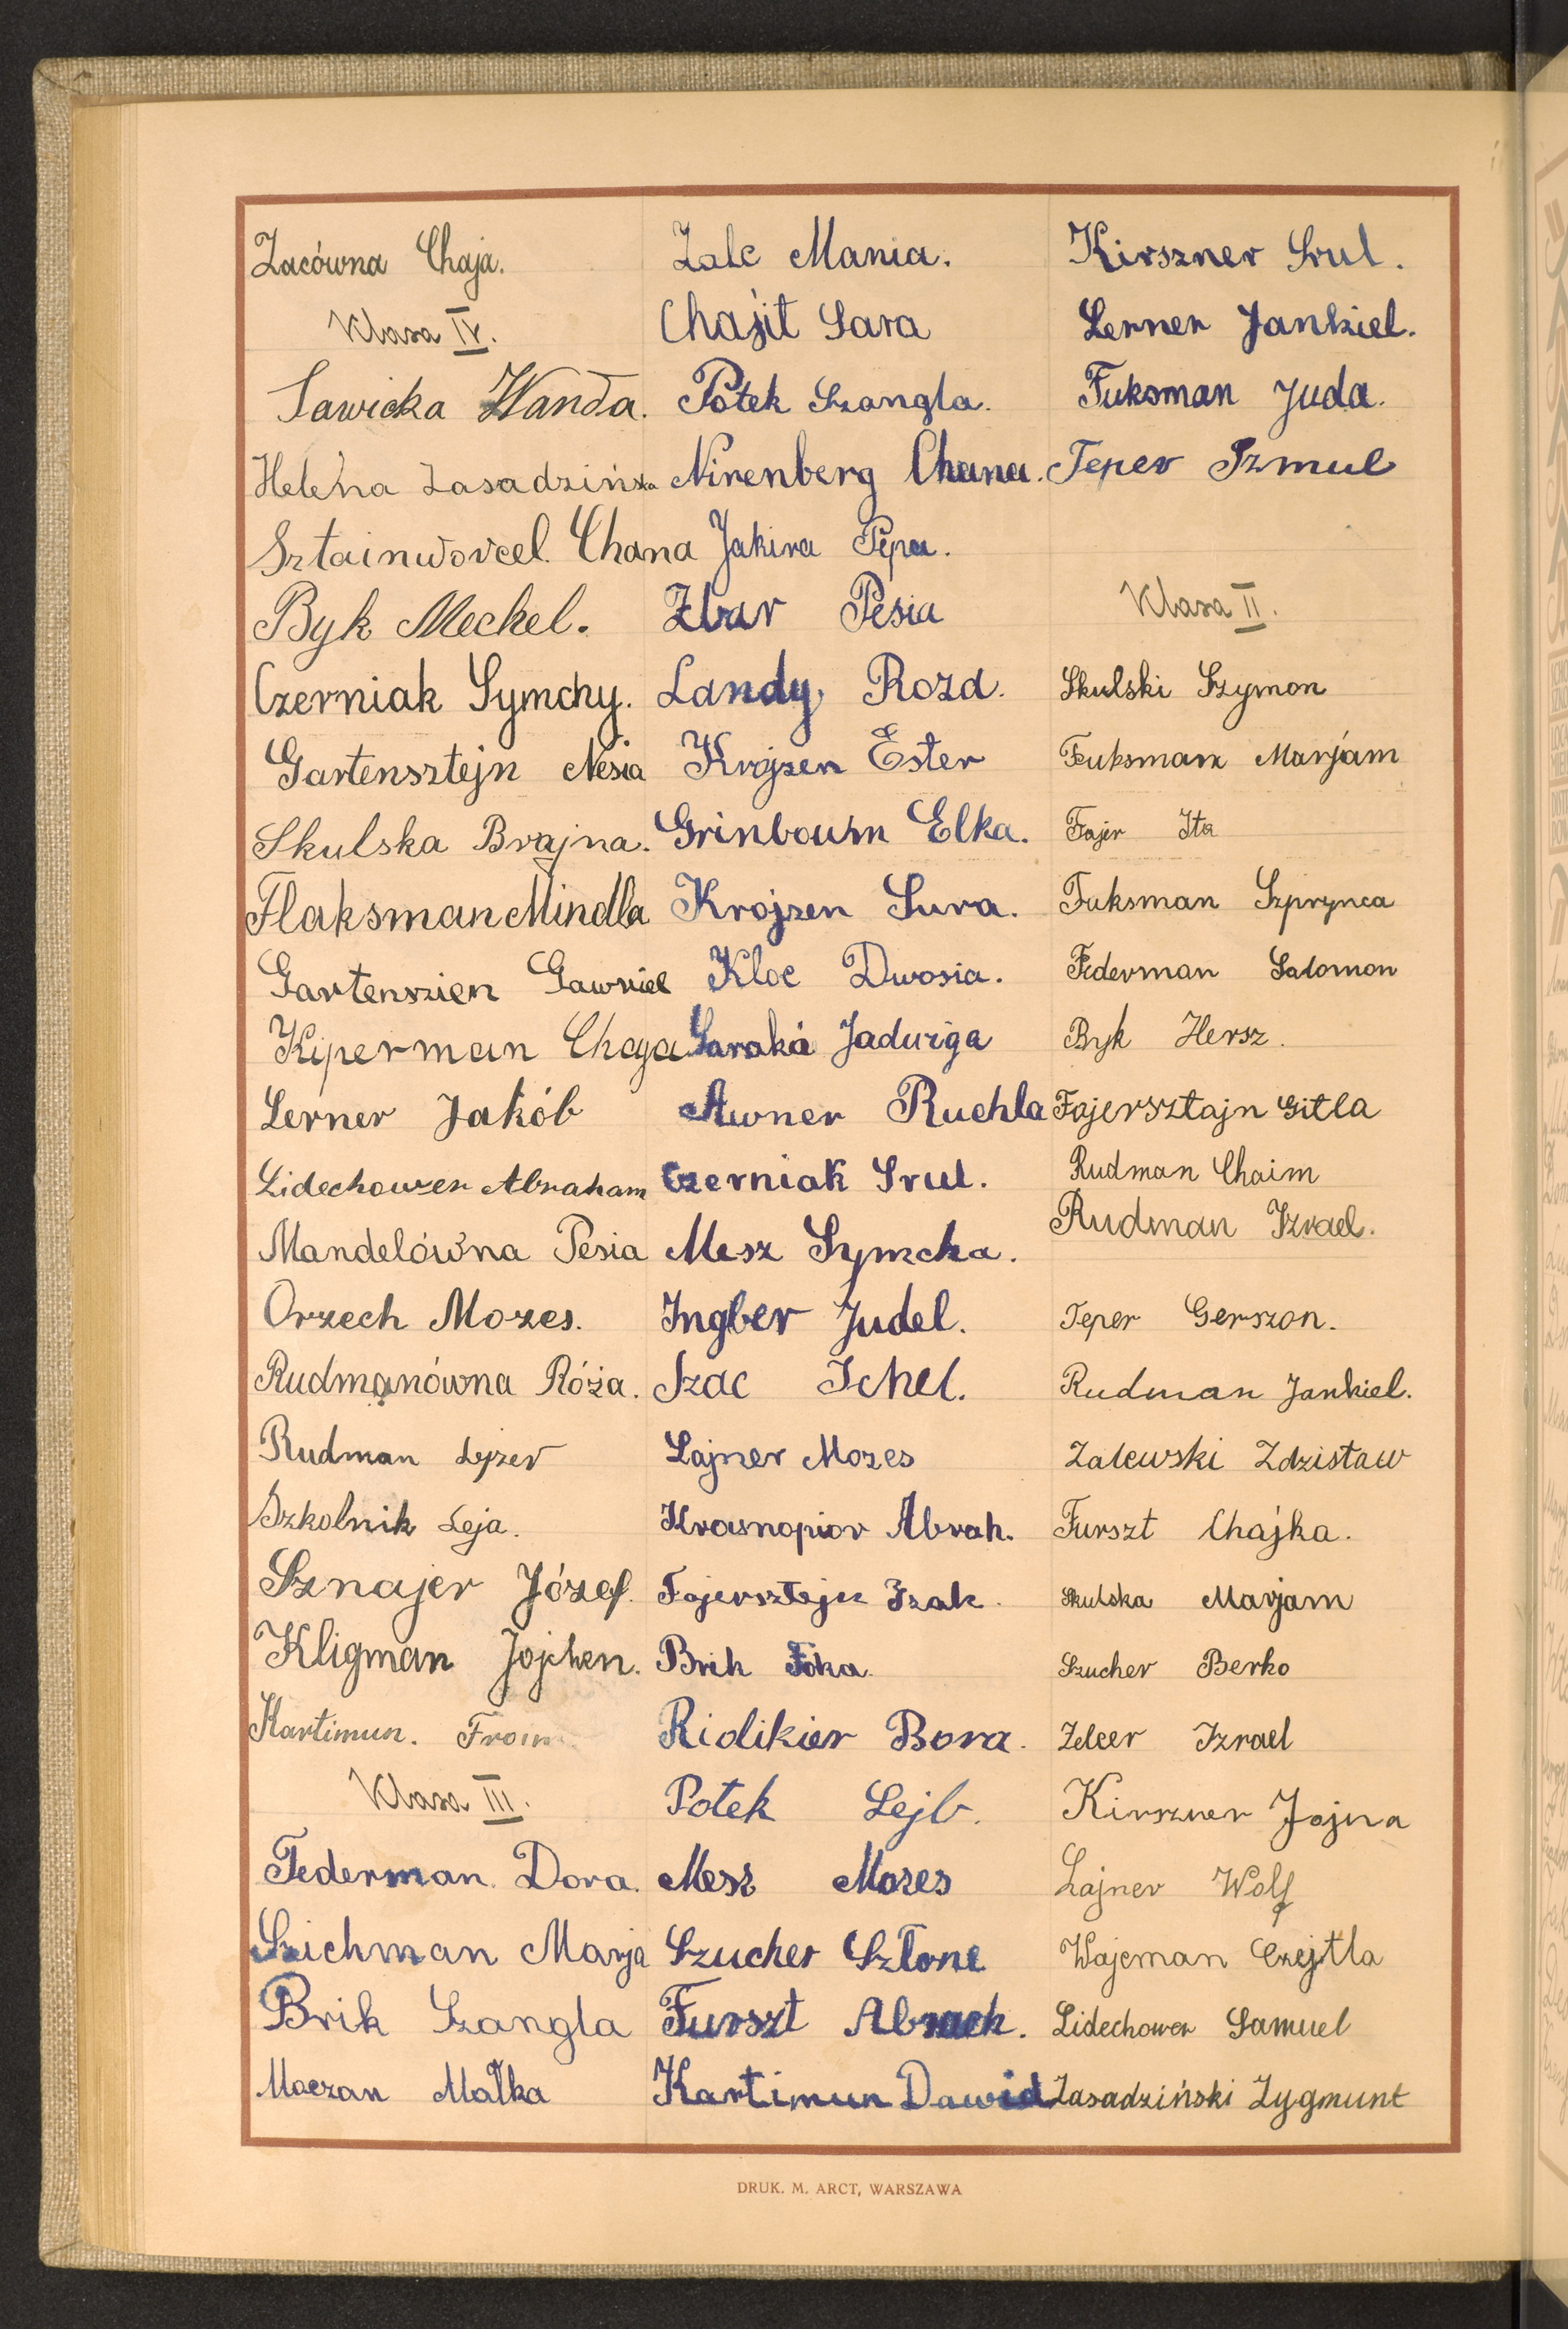 Zacówna Chaja.
Klasa IV.
Sawicka Wanda.
Helena Zasadzińska
Sztainworcel. Chana
Byk Meckel.
Czerniak Symchy.
Gartensztejn Nesia
Skulska Brajna.
Flaksman Mindla
Gartenszien Gawriel
Kiperman Chaja
Lerner Jakób
Lidechower Abraham
Mandelówna Pesia
Orzech Mozes.
Rudmanówna Róża.
Rudman Lejzer
Szkolnik Leja.
Sznajer Józef.
Kligman Jojchen.
Kartimun. Froim
Klasa III.
Federman. Dora.
Szichman Marja
Brik Szangla
Moczan Małka
Zalc Mania.
Chajit Sara
Potek Szangla.
Nirenberg Chana.
Jakira Pepa.
Zbar Pesia
Landy, Rozd.
Krojzen Ester
Grinboum Elka.
Krojzen Sura.
Kloc Dwosia.
Saraka Jadwiga
Awner Ruchla
Czerniak Srul.
Mesz Symcha.
Ingber Judel.
Szac Ichel.
Lajner Mozes
Krasnopior Abrah.
Fajersztejn Izak.
Brik Foka.
Ridikier Bora.
Potek Lejb.
Mesz Mozes
Szucher Szlone
Furszt Abrach.
Kartimun Dawid
Kirszner Srul.
Lerner Jankiel.
Fuksman Juda.
Teper Szmul
Klasa II.
Skulski Szymon
Fuksman Marjam
Fajer Ita
Fuksman Szprynca
Federman Salomon
Byk Hersz.
Fajersztajn Gitla
Rudman Chaim
Rudman Izrael.
Teper Gerszon.
Rudman Jankiel.
Zalewski Zdzisław
Furszt Chajka.
Skulska Marjam
Szucher Berko
Zelcer Izrael
Kirszner Jojna
Lajner Wolf
Wajcman Czejtla
Lidechower Samuel
Zasadziński Zygmunt
DRUK. M. ARCT, WARSZAWA